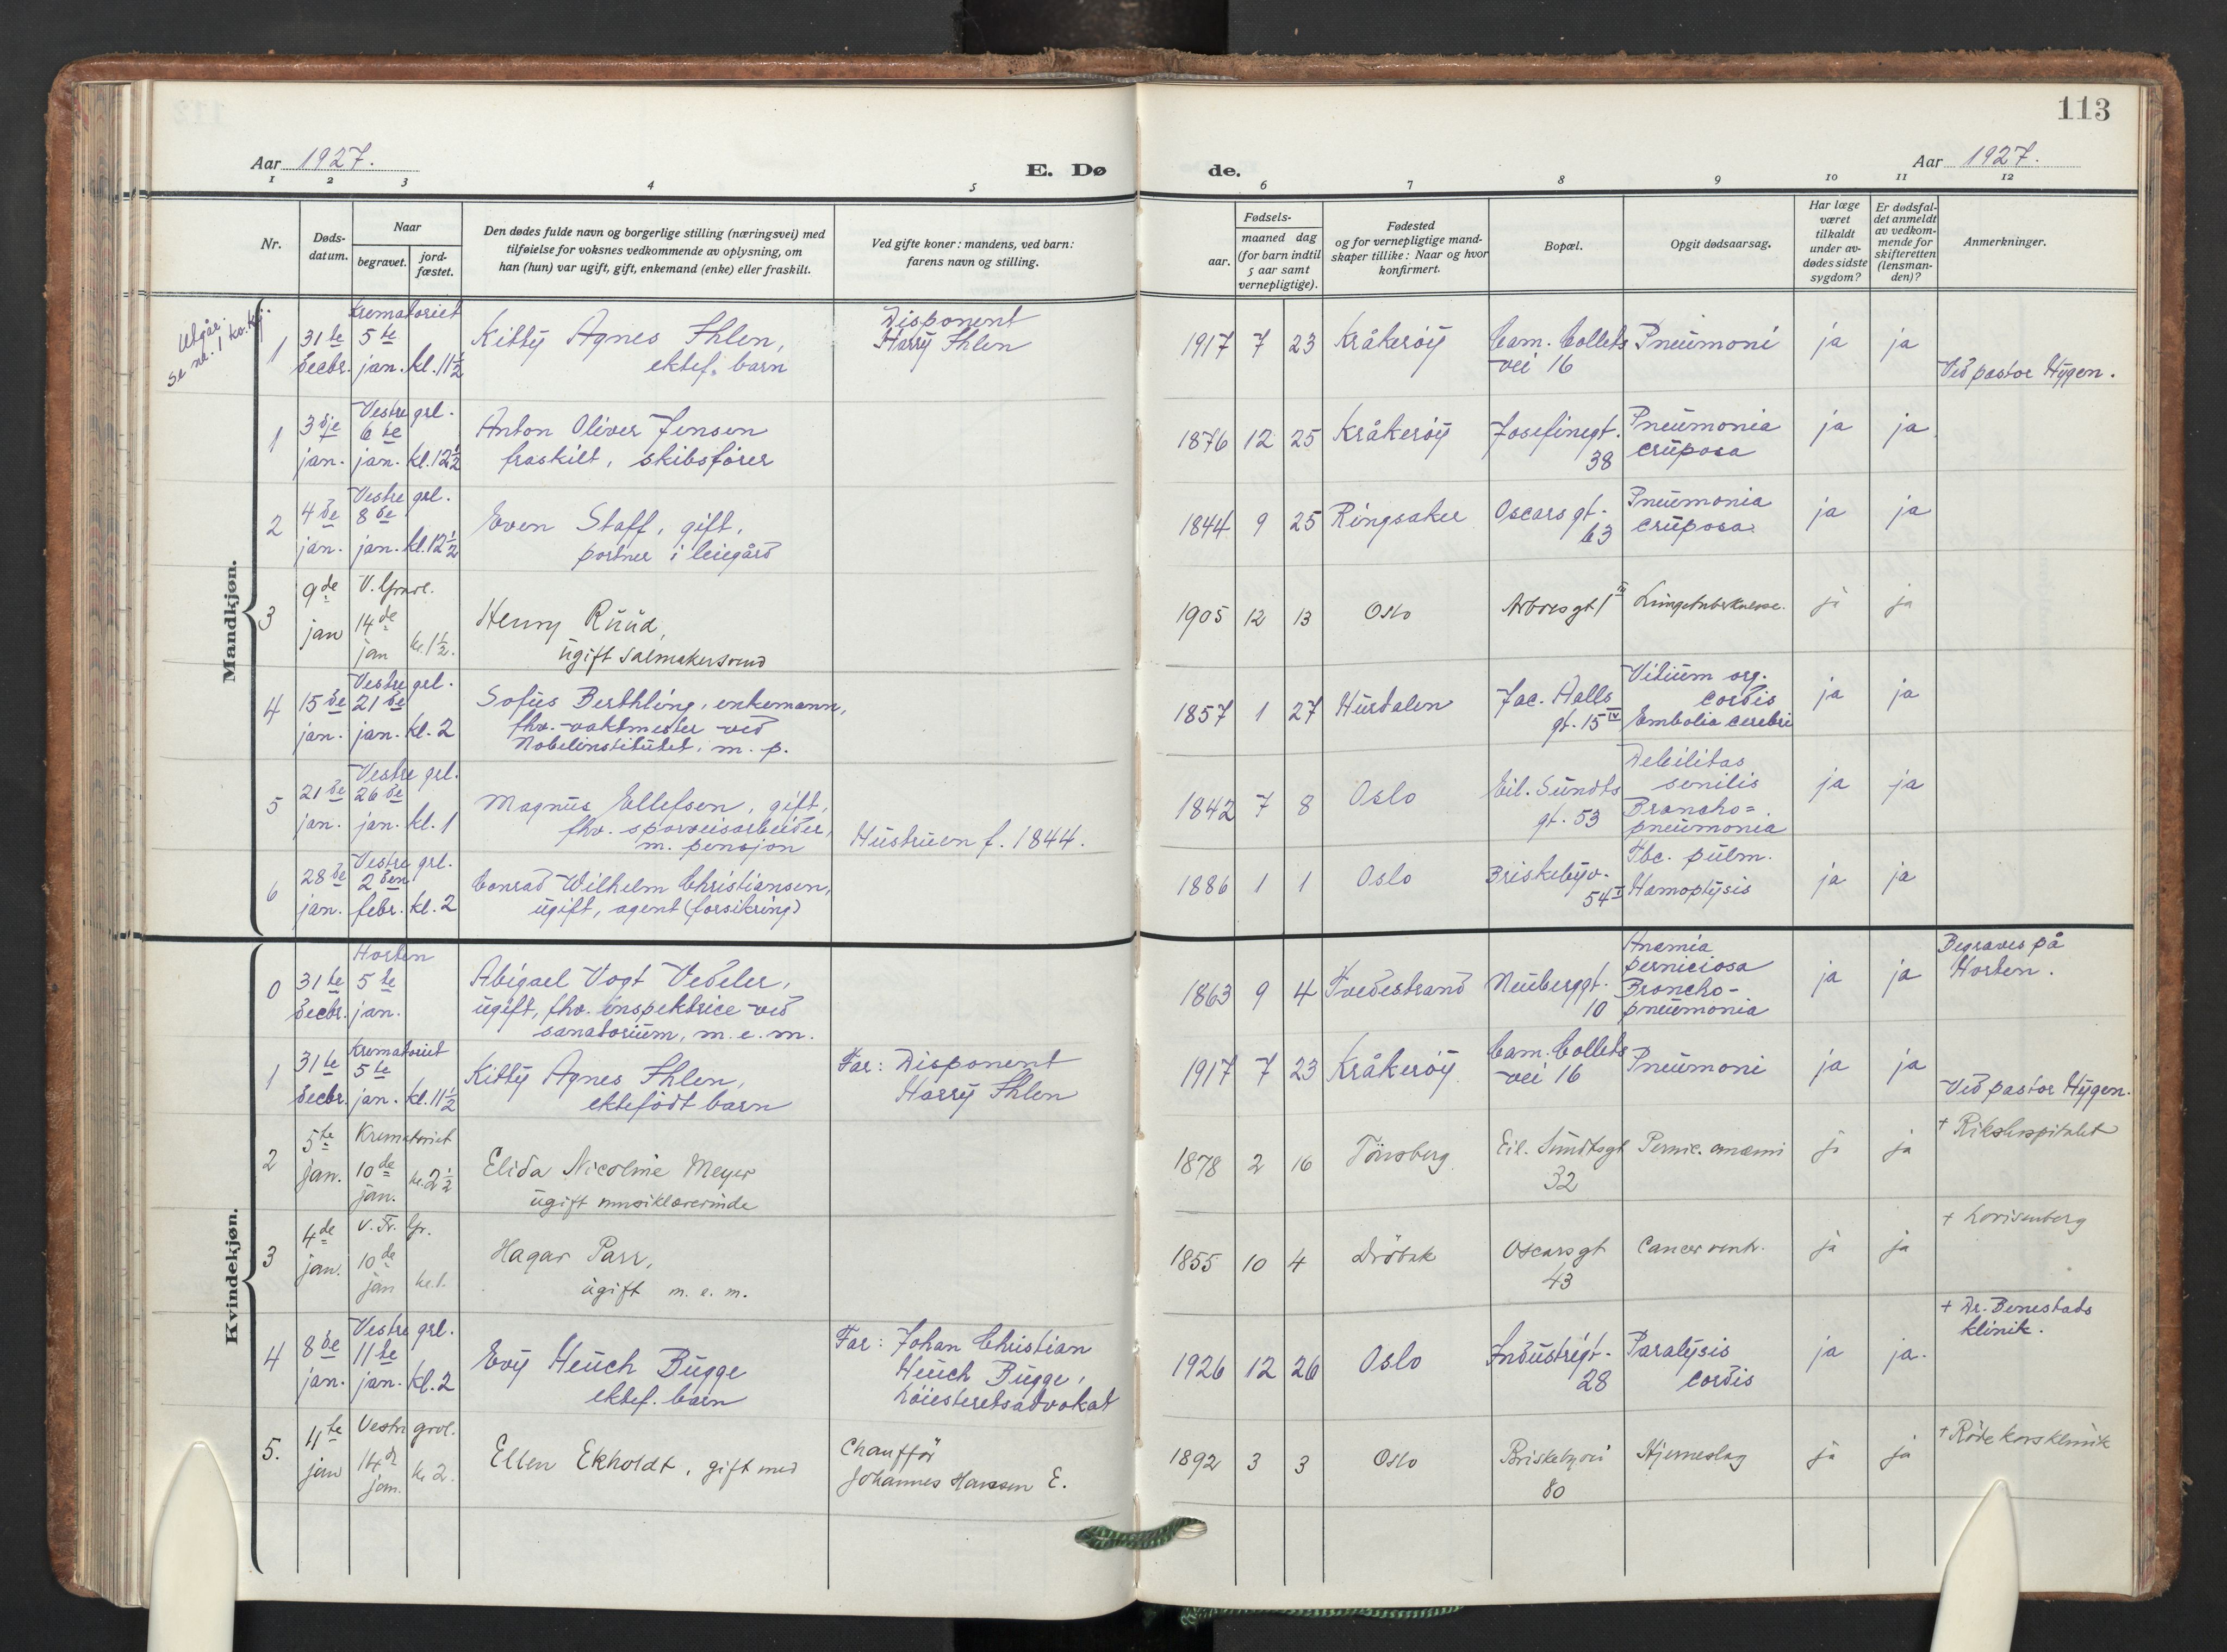 113
Aar 1927.
E. Dø
de.
Aar 1927.
1 2 3 4 5 6 7 8 9 10 11 12
Nr.
Døds-
datum.
Naar
begravet.
jord-
fæstet.
Den dødes fulde navn og borgerlige stilling (næringsvei) med
tilføielse for voksnes vedkommende av oplysning, om
han (hun) var ugift, gift, enkemand (enke) eller fraskilt.
Ved gifte koner: mandens, ved barn:
farens navn og stilling.
Fødsels-
aar.
maaned dag
(for barn indtil
5 aar samt
vernepligtige).
Fødested
og for vernepligtige mand-
skaper tillike: Naar og hvor
konfirmert.
Bopæl.
Opgit dødsaarsag.
Har læge
været
tilkaldt
under av-
dødes sidste
sygdom?
Er dødsfal-
det anmeldt
av vedkom-
mende for
skifteretten
(lensman-
den)?
Anmerkninger.
Mandkjøn.
Utgår.
se nr. 1 kv.kj.
1
31te
decbr.
Krematoriet
5te
jan. kl. 11½
Kitty Agnes Ihlen,
ektef. barn
Disponent
Harry Ihlen
1917 7 23 Kråkerøy
Cam. Collets
vei 16
Pneumoni
ja ja
Ved pastor Hygen.
1
3dje
jan.
Vestre grl.
6te
jan. kl. 12½
Anton Oliver Jensen
fraskilt, skibsfører
1876 12 25 Kråkerøy
Josefinegt.
38
Pneumonia
cruposa
ja ja
2
4de
jan.
Vestre grl.
8de
jan. kl. 12½
Even Staff, gift,
portner i leiegård
1844 9 25 Ringsaker
Oscarsgt.
63
Pneumonia
cruposa
ja ja
3
9de
jan
V. Gravl.
14de
jan kl. 1½.
Henry Ruud,
ugift salmakersvend
1905 12 13 Oslo
Arbosgt 1 III
Lungetuberkulose.
ja ja
4
15de
jan.
Vestre grl.
21de
jan. kl. 2
Sofus Berthling, enkemann,
fhv. vaktmester ved
Nobelinstitutet, m. p.
1857 1 27 Hurdalen
Jac. Aalls
gt. 15 IV
Vitium org.
cordis
Embolia cerebri
ja ja
5
21de
jan.
Vestre grl.
26de
jan. kl. 1
Magnus Ellefsen, gift,
fhv. sporveisarbeider,
m. pensjon
Hustruen f. 1844.
1842 7 8 Oslo
Eil. Sundts
gt. 53
Debilitas
senilis
Broncho=
pneumonia
ja ja
6
28de
jan.
Vestre grl.
2den
febr. kl. 2
Conrad Wilhelm Christiansen,
ugift, agent (forsikring)
1886 1 1 Oslo
Briskebyv.
54 I
Tbc. pulm.
Hæmoptysis
ja ja
Kvindekjøn.
0
31te
decbr.
Horten
5te
jan.
Abigael Vogt Vedeler,
ugift, fhv. inspektrice ved
sanatorium, m. e. m.
1863 9 4 Tvedestrand
Neuberggt.
10
Anæmia
perniciosa
Broncho-
pneumonia
ja ja
Begraves på
Horten.
1
31te
decbr.
Krematoriet
5te
jan. kl. 11½
Kitty Agnes Ihlen,
ektefødt barn
Far: Disponent
Harry Ihlen
1917 7 23 Kråkerøy
Cam. Collets
vei 16
Pneumoni
ja ja
Ved pastor Hygen.
2
5te
jan.
Krematoriet
10de
jan. kl. 2½
Elida Nicoline Meyer
ugift musiklærerinde
1878 2 16 Tönsberg
Eil. Sundtsgt
32
Pernic. anæmi
ja ja
+ Rikshospitalet
3
4de
jan.
V. Fr. Gr.
10de
jan kl. 1.
Hagar Parr,
ugift m. e. m.
1855 10 4 Dröbak
Oscarsgt
43
Cancer ventr.
ja ja
+ Lovisenberg
4
8de
jan.
Vestre grl.
11te
jan. kl. 2
Evy Heuch Bugge
ektef. barn
Far: Johan Christian
Heuch Bugge,
høiesteretsadvokat
1926 12 26 Oslo
Industrigt.
28
Paralysis
cordis
ja ja.
+ Dr. Benestads
klinik.
5.
11te
jan
Vestre grvl.
14de
jan. kl 2.
Ellen Ekholdt, gift med
Chauffør
Johannes Hanssen E.
1892 3 3 Oslo
Briskebyvei
80
Hjerneslag
ja ja
+ Røde kors klinik